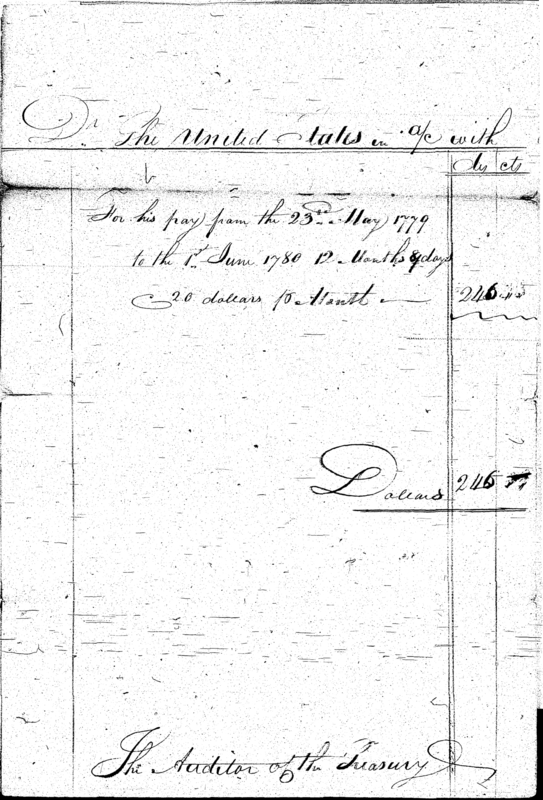 Dr The United States in a/c with
ds cts
For his pay from the 23rd May 1779
to the 1st June 1780 12 Months 8 days
@ 20 dollars p Month
Dollars 246
The Auditor of the Treasury